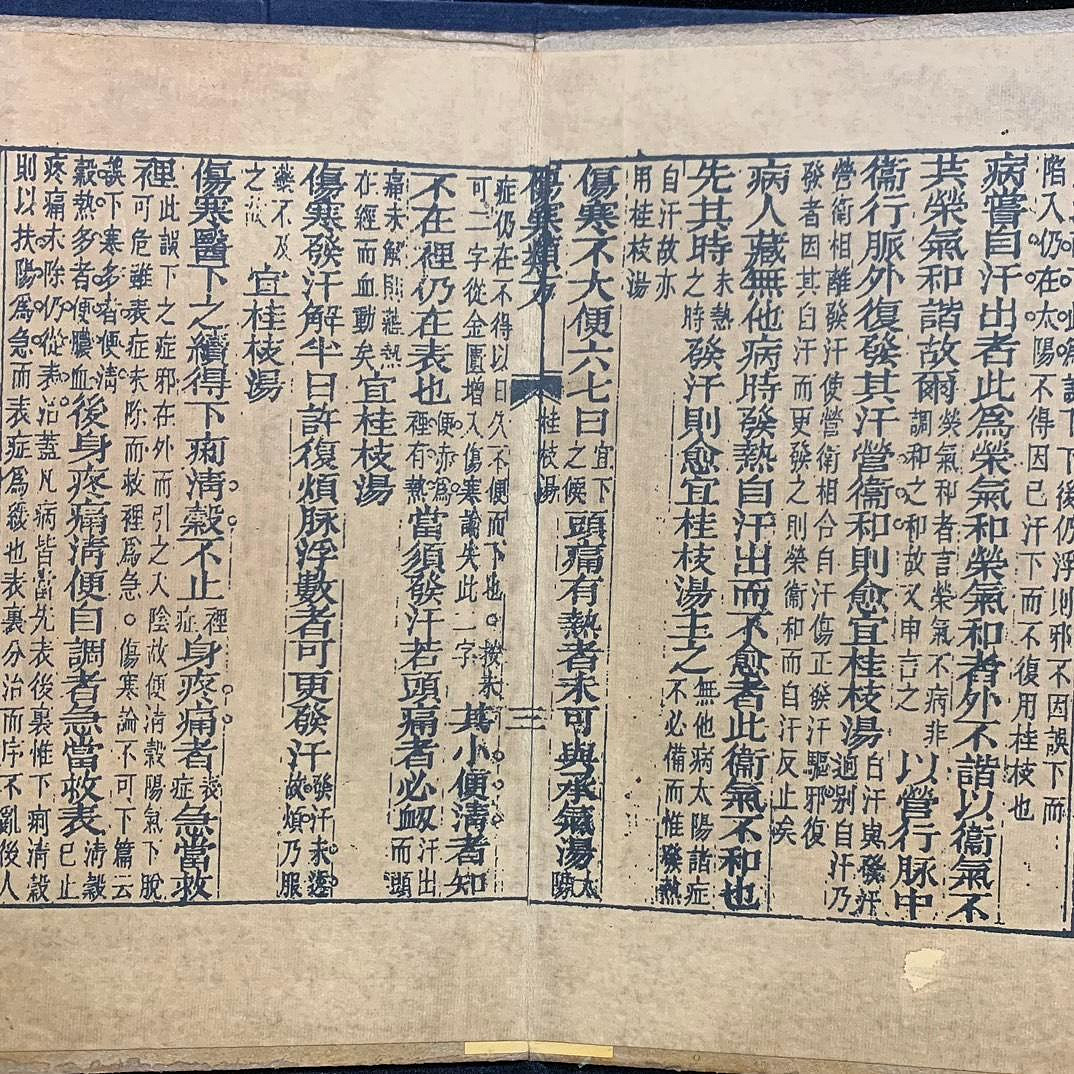 誤下下後仍浮則邪不因誤下而
陷入仍在太陽不得因已汗下而不復用桂枝也
病嘗自汗出者此為榮氣和榮氣和者外不諧以衞氣不
共榮氣和諧故爾榮氣和者言榮氣不病非調和之和故又申言之以營行脈中
衞行脈外復發其汗營衞和則愈宜桂枝湯自汗與發汗逈別自汗乃
營衞相離發汗使營衞相合自汗傷正發汗驅邪復
發者因其自汗而更發之則榮衞和而自汗反止矣
病人藏無他病時發熱自汗出而不愈者此衞氣不和也
先其時未熱之時發汗則愈宜桂枝湯主之無他病太陽諸症不必備而惟發熱
自汗故亦
用桂枝湯
傷寒不大便六七日宜下之候頭痛有熱者未可與承氣湯太陽
傷寒類方 桂枝湯 三
症仍在不得以日久不便而下也。按未可二字從金匱增入傷寒論失此二字其小便清者知
不在裡仍在表也便赤為裡有熱當須發汗若頭痛者必衂汗出而頭
痛未解則藴熱在經而血動矣宜桂枝湯
傷寒發汗解半日許復煩脈浮數者可更發汗發汗未透故煩乃服
藥不及之故宜桂枝湯
傷寒醫下之續得下痢清穀不止裡症身疼痛者表症急當救
裡此誤下之症邪在外而引之入陰故便清穀陽氣下脫可危雖表症未除而救裡為急。傷寒論不可下篇云
誤下寒多者便清穀熱多者便膿血後身疼痛清便自調者急當救表清穀已止
疼痛未除仍從表治蓋凡病皆當先表後裏惟下痢清穀
則以扶陽為急而表症為緩也表裏分治而序不亂後人